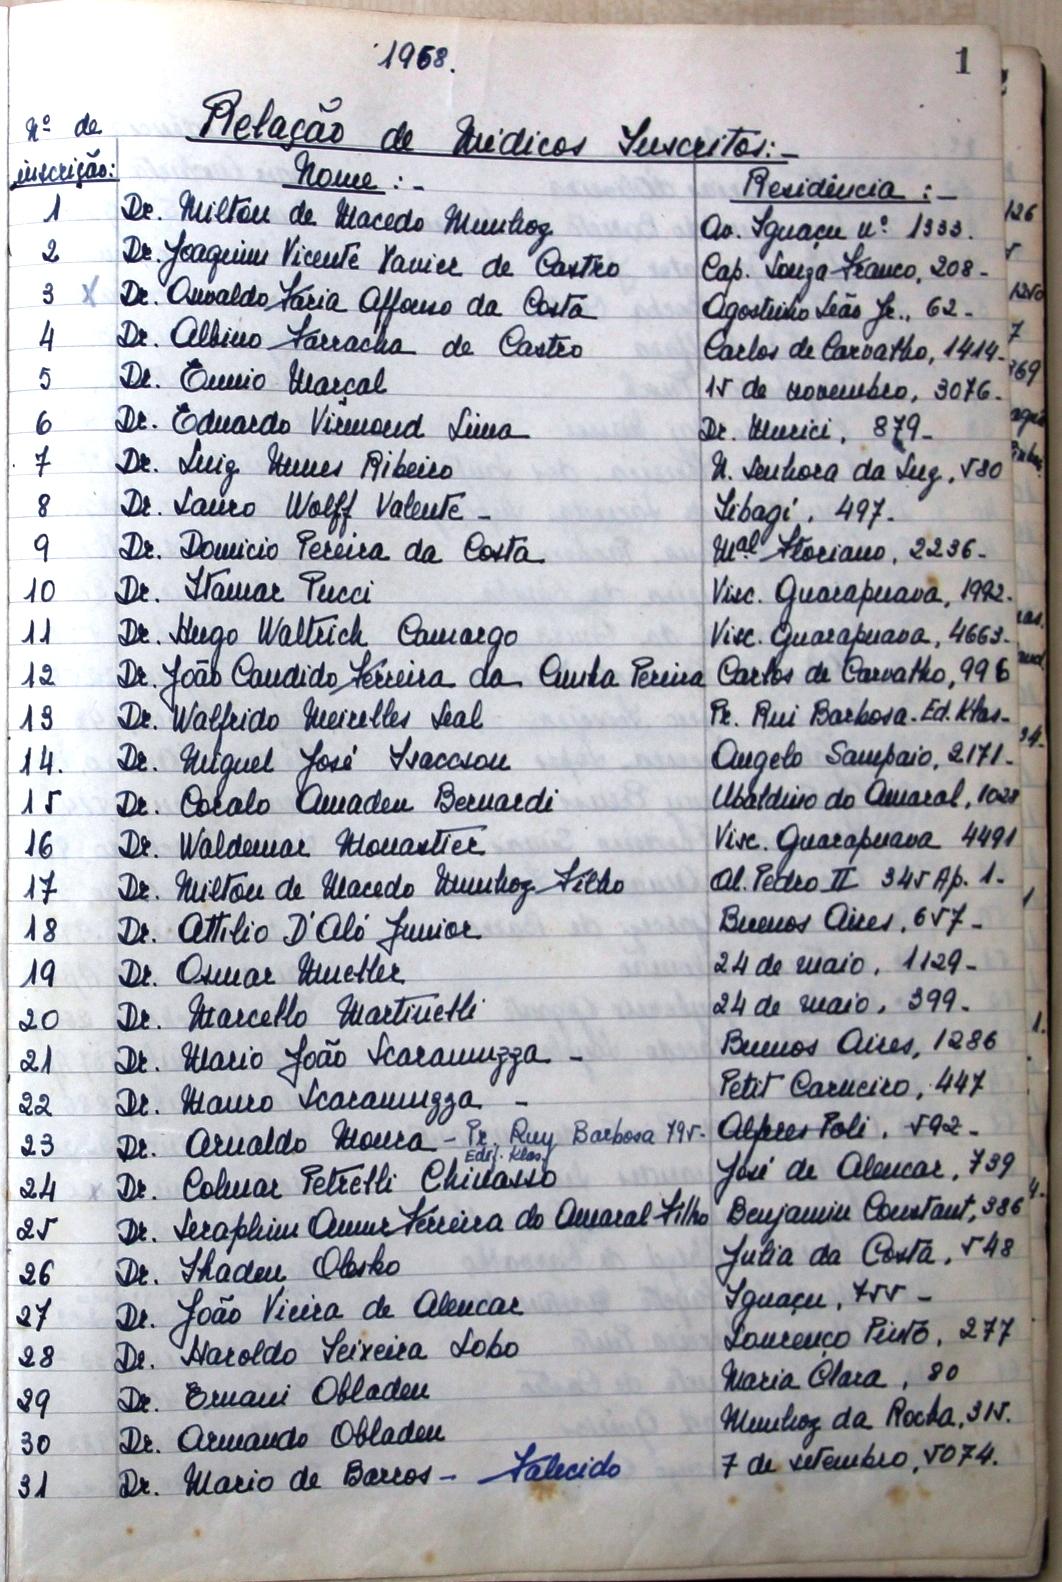 1968.
1
Nº de inscrição:
Relação de Médicos Inscritos:-
Nome:-
Residência:-
1 Dr. Milton de Macedo Munhoz Av. Iguaçu nº 1333.
2 Dr. Joaquim Vicente Xavier de Castro Cap. Souza Franco, 208-
3 X Dr. Osvaldo Faria Affonso da Costa Agostinho Leão Jr., 62-
4 Dr. Albino Farracha de Castro Carlos de Carvalho, 1414-
5 Dr. Ennio Marçal 15 de novembro, 3076-
6 Dr. Eduardo Virmond Lima Dr. Murici, 879-
7 Dr. Luiz Nunes Ribeiro N. Senhora da Luz, 580
8 Dr. Lauro Wolff Valente- Tibagi, 497-
9 Dr. Domicio Pereira da Costa Mal Floriano, 2236-
10 Dr. Itamar Pucci Visc. Guarapuava, 1992-
11 Dr. Hugo Waltrich Camargo Visc. Guarapuava, 4663-
12 Dr. João Candido Ferreira da Cunha Pereira Carlos de Carvalho, 996
13 Dr. Walfrido Meirelles Leal Pr. Rui Barbosa-Ed. Klas-
14. Dr. Miguel José Isaccson Angelo Sampaio, 2171-
15 Dr. Coralo Amadeu Bernardi Ubaldino do Amaral, 1028
16 Dr. Waldemar Monastier Visc. Guarapuava 4491
17 Dr. Milton de Macedo Munhoz Filho Al. Pedro II 345 Ap. 1-
18 Dr. Attilio D'Aló Junior Buenos Aires, 657-
19 Dr. Osmar Mueller 24 de maio, 1129-
20 Dr. Marcello Martinelli 24 de maio, 399-
21 Dr. Mario João Scaramuzza- Buenos Aires, 1286
22 Dr. Mauro Scaramuzza- Petit Carneiro, 447
23 Dr. Arnaldo Moura-Pr. Ruy Barbosa 795- Alferes Poli, 592-
Edif. Klas
24 x Dr. Colmar Petrelli Chinasso José de Alencar, 739
25 Dr. Seraphim Amur Ferreira do Amaral Filho Benjamin Constant, 386
26 Dr. Thadeu Olesko Julia da Costa, 548
27 Dr. João Vieira de Alencar Iguaçu, 755-
28 Dr. Haroldo Teixeira Lobo Lourenço Pinto, 277
29 Dr. Ernani Obladen Maria Clara, 80
30 Dr. Armando Obladen Munhoz da Rocha, 315.
31 Dr. Mario de Barros- Falecido 7 de setembro, 5074.